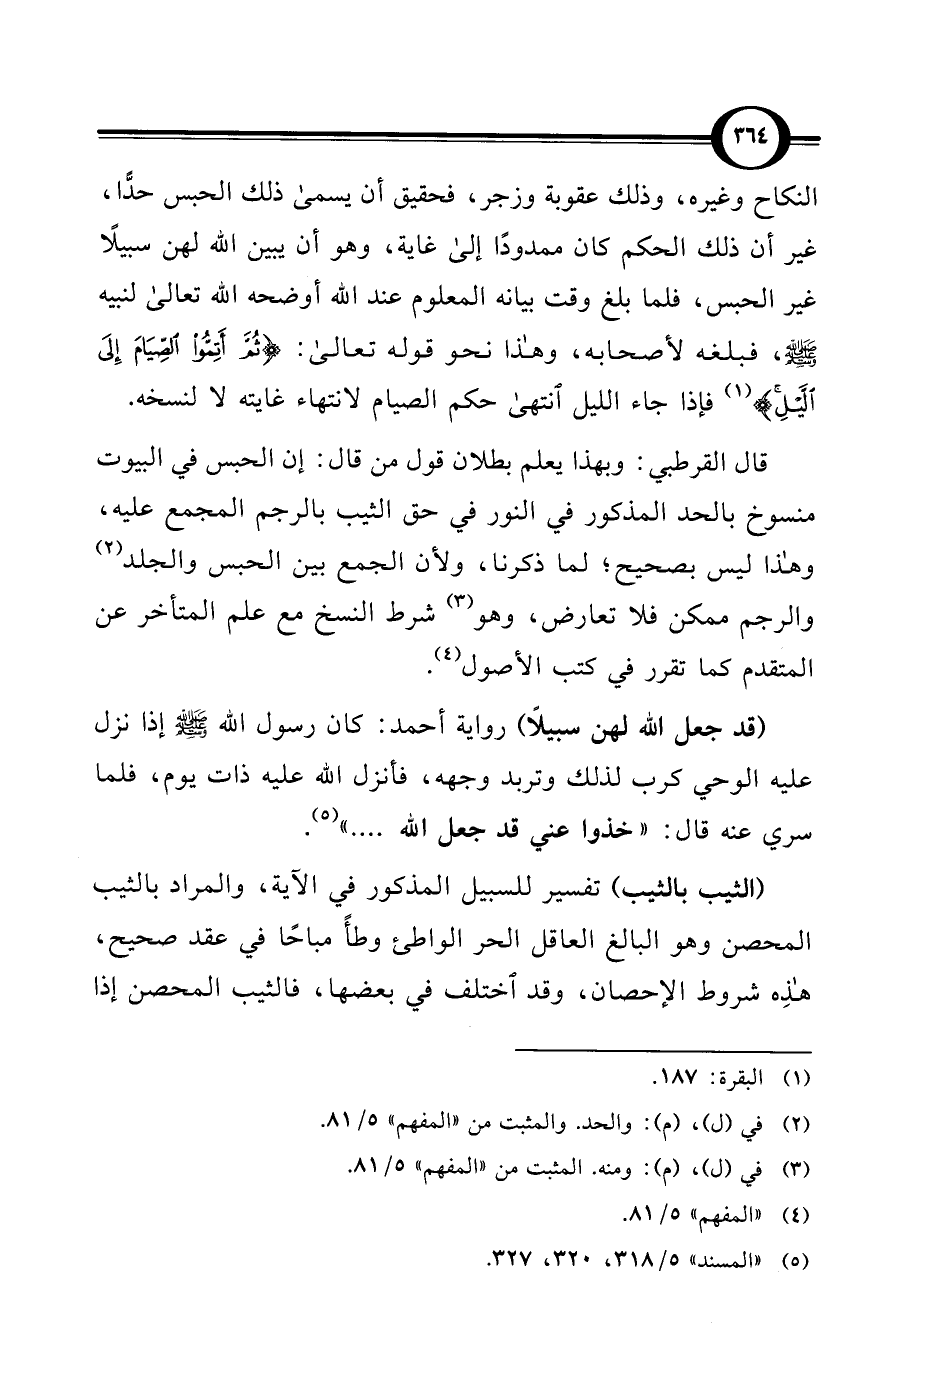 ٣٦٤
النكاح وغيره، وذلك عقوبة وزجر، فحقيق أن يسمىٰ ذلك الحبس حدًّا،
غير أن ذلك الحكم كان ممدودًا إلىٰ غاية، وهو أن يبين الله لهن سبيلًا
غير الحبس، فلما بلغ وقت بيانه المعلوم عند الله أوضحه الله تعالىٰ لنبيه
ﷺ، فبلغه لأصحابه، وهٰذا نحو قوله تعالىٰ: ﴿ثُمَّ أَتِمُّوا۟ ٱلصِّيَامَ إِلَى
ٱلَّيْلِۚ﴾(١) فإذا جاء الليل ٱنتهىٰ حكم الصيام لانتهاء غايته لا لنسخه.
قال القرطبي: وبهذا يعلم بطلان قول من قال: إن الحبس في البيوت
منسوخ بالحد المذكور في النور في حق الثيب بالرجم المجمع عليه،
وهٰذا ليس بصحيح؛ لما ذكرنا، ولأن الجمع بين الحبس والجلد(٢)
والرجم ممكن فلا تعارض، وهو(٣) شرط النسخ مع علم المتأخر عن
المتقدم كما تقرر في كتب الأصول(٤).
(قد جعل الله لهن سبيلًا) رواية أحمد: كان رسول الله ﷺ إذا نزل
عليه الوحي كرب لذلك وتربد وجهه، فأنزل الله عليه ذات يوم، فلما
سري عنه قال: «خذوا عني قد جعل الله ....»(٥).
(الثيب بالثيب) تفسير للسبيل المذكور في الآية، والمراد بالثيب
المحصن وهو البالغ العاقل الحر الواطئ وطأً مباحًا في عقد صحيح،
هٰذِه شروط الإحصان، وقد ٱختلف في بعضها، فالثيب المحصن إذا
(١) البقرة: ١٨٧.
(٢) في (ل)، (م): والحد. والمثبت من «المفهم» ٥/ ٨١.
(٣) في (ل)، (م): ومنه. المثبت من «المفهم» ٥/ ٨١.
(٤) «المفهم» ٥/ ٨١.
(٥) «المسند» ٥/ ٣١٨، ٣٢٠، ٣٢٧.